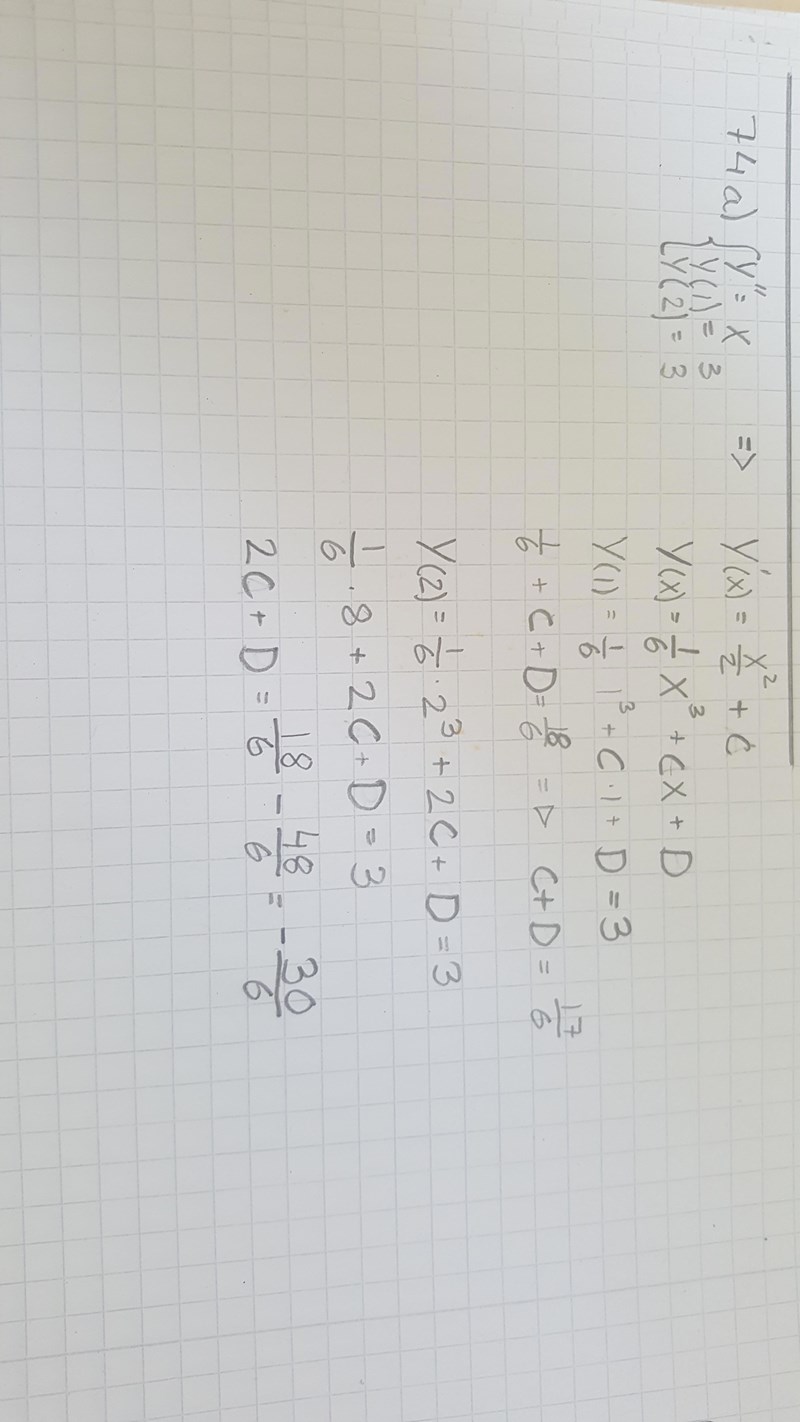 74a) { y'' = x => y'(x) = x²/2 + C
y(1) = 3 y(x) = 1/6 x³ + Cx + D
y(2) = 3 y(1) = 1/6 1³ + C·1 + D = 3
1/6 + C + D = 18/6 => C + D = 17/6
y(2) = 1/6 · 2³ + 2C + D = 3
1/6 · 8 + 2C + D = 3
2C + D = 18/6 - 48/6 = -30/6